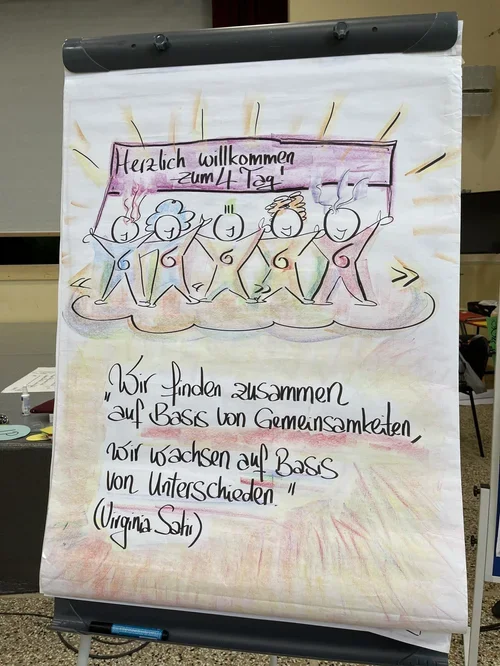 Herzlich willkommen
zum 4. Tag!
"Wir finden zusammen
auf Basis von Gemeinsamkeiten,
wir wachsen auf Basis
von Unterschieden."
(Virginia Satir)